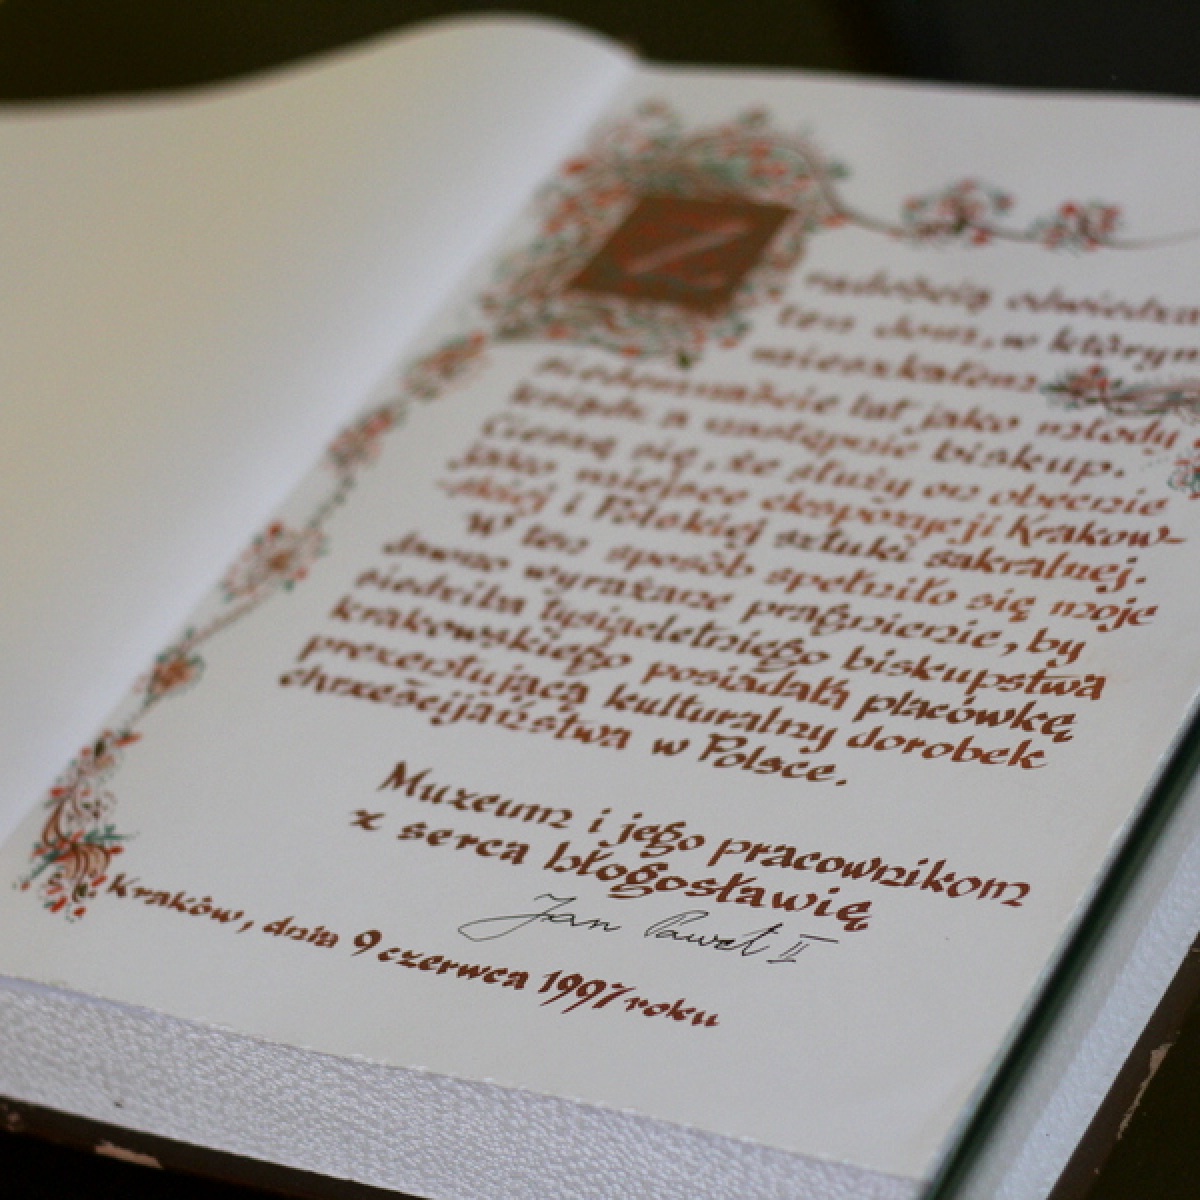 Z
radością odwiedzam
ten dom, w którym
mieszkałem
siedemnaście lat jako młody
ksiądz a następnie biskup.
Cieszę się, że służy on obecnie
jako miejsce ekspozycji Krakow-
skiej i Polskiej sztuki sakralnej.
W ten sposób spełniło się moje
dawno wyrażane pragnienie, by
siedziba tysiącletniego biskupstwa
krakowskiego posiadała placówkę
prezentującą kulturalny dorobek
chrześcijaństwa w Polsce.
Muzeum i jego pracownikom
z serca błogosławię
Jan Paweł II
Kraków, dnia 9 czerwca 1997 roku